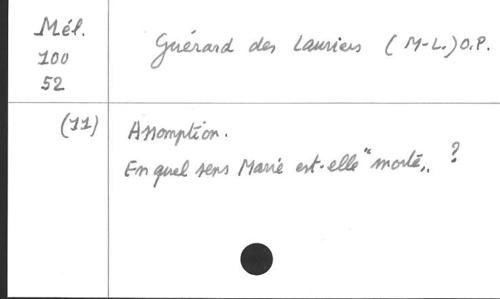 Mél.
100
52
Guérard des Lauriers (M-L.) O.P.
(11)
Assomption.
En quel sens Marie est-elle "morte„ ?